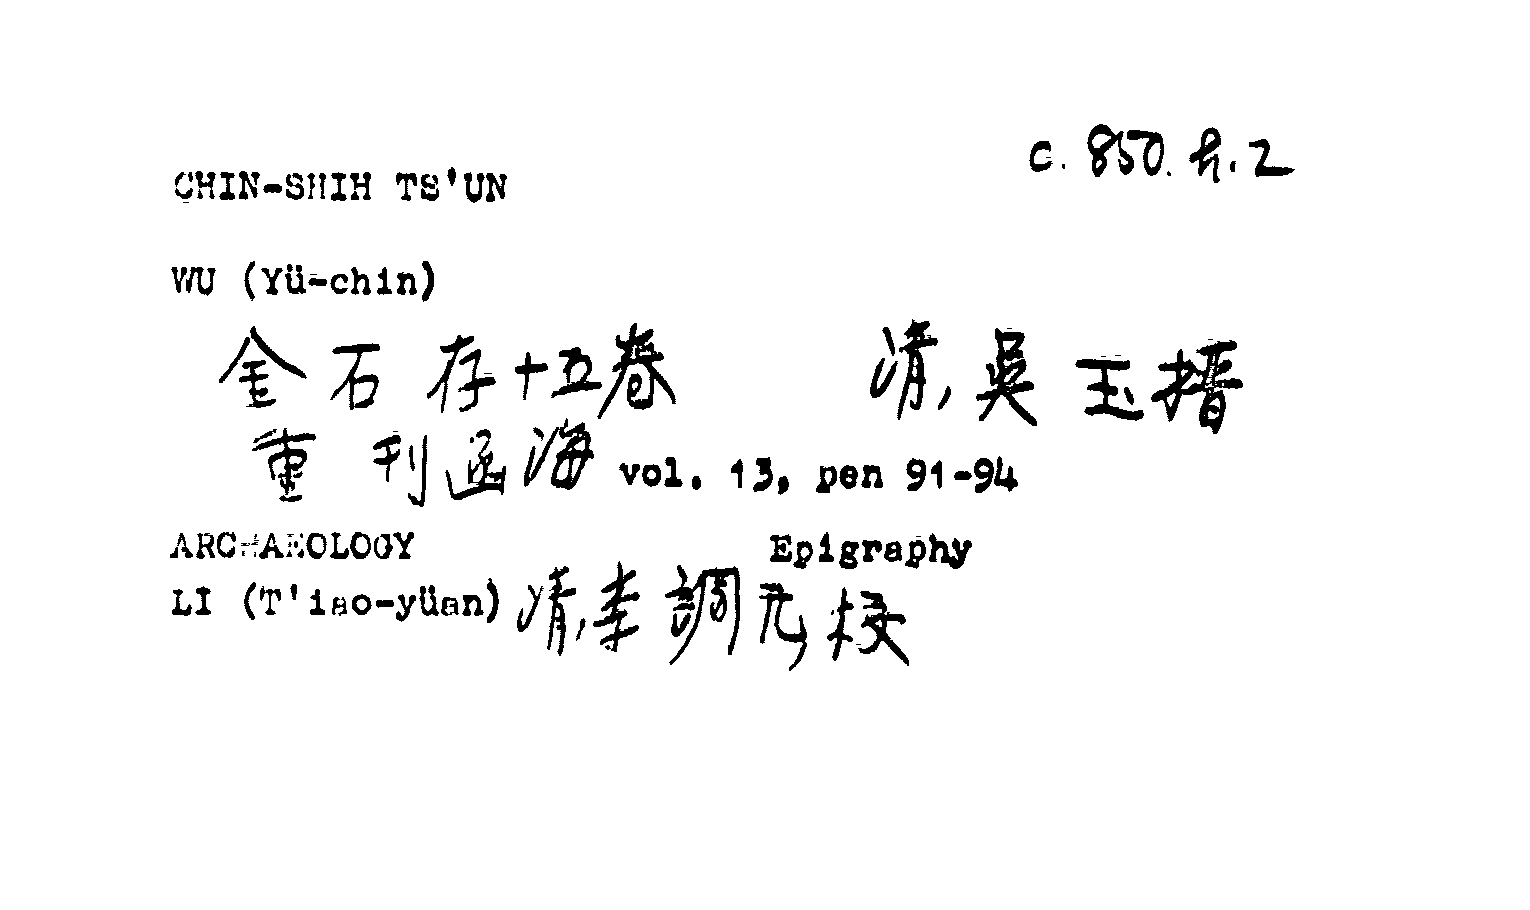 c. 850. h. 2
CHIN-SHIH TS'UN
WU (Yü-chin)
金石存十五卷 清, 吳玉搢
重刊函海 vol. 13, pen 91-94
ARCHAEOLOGY Epigraphy
LI (T'iao-yüan) 清, 李調元校